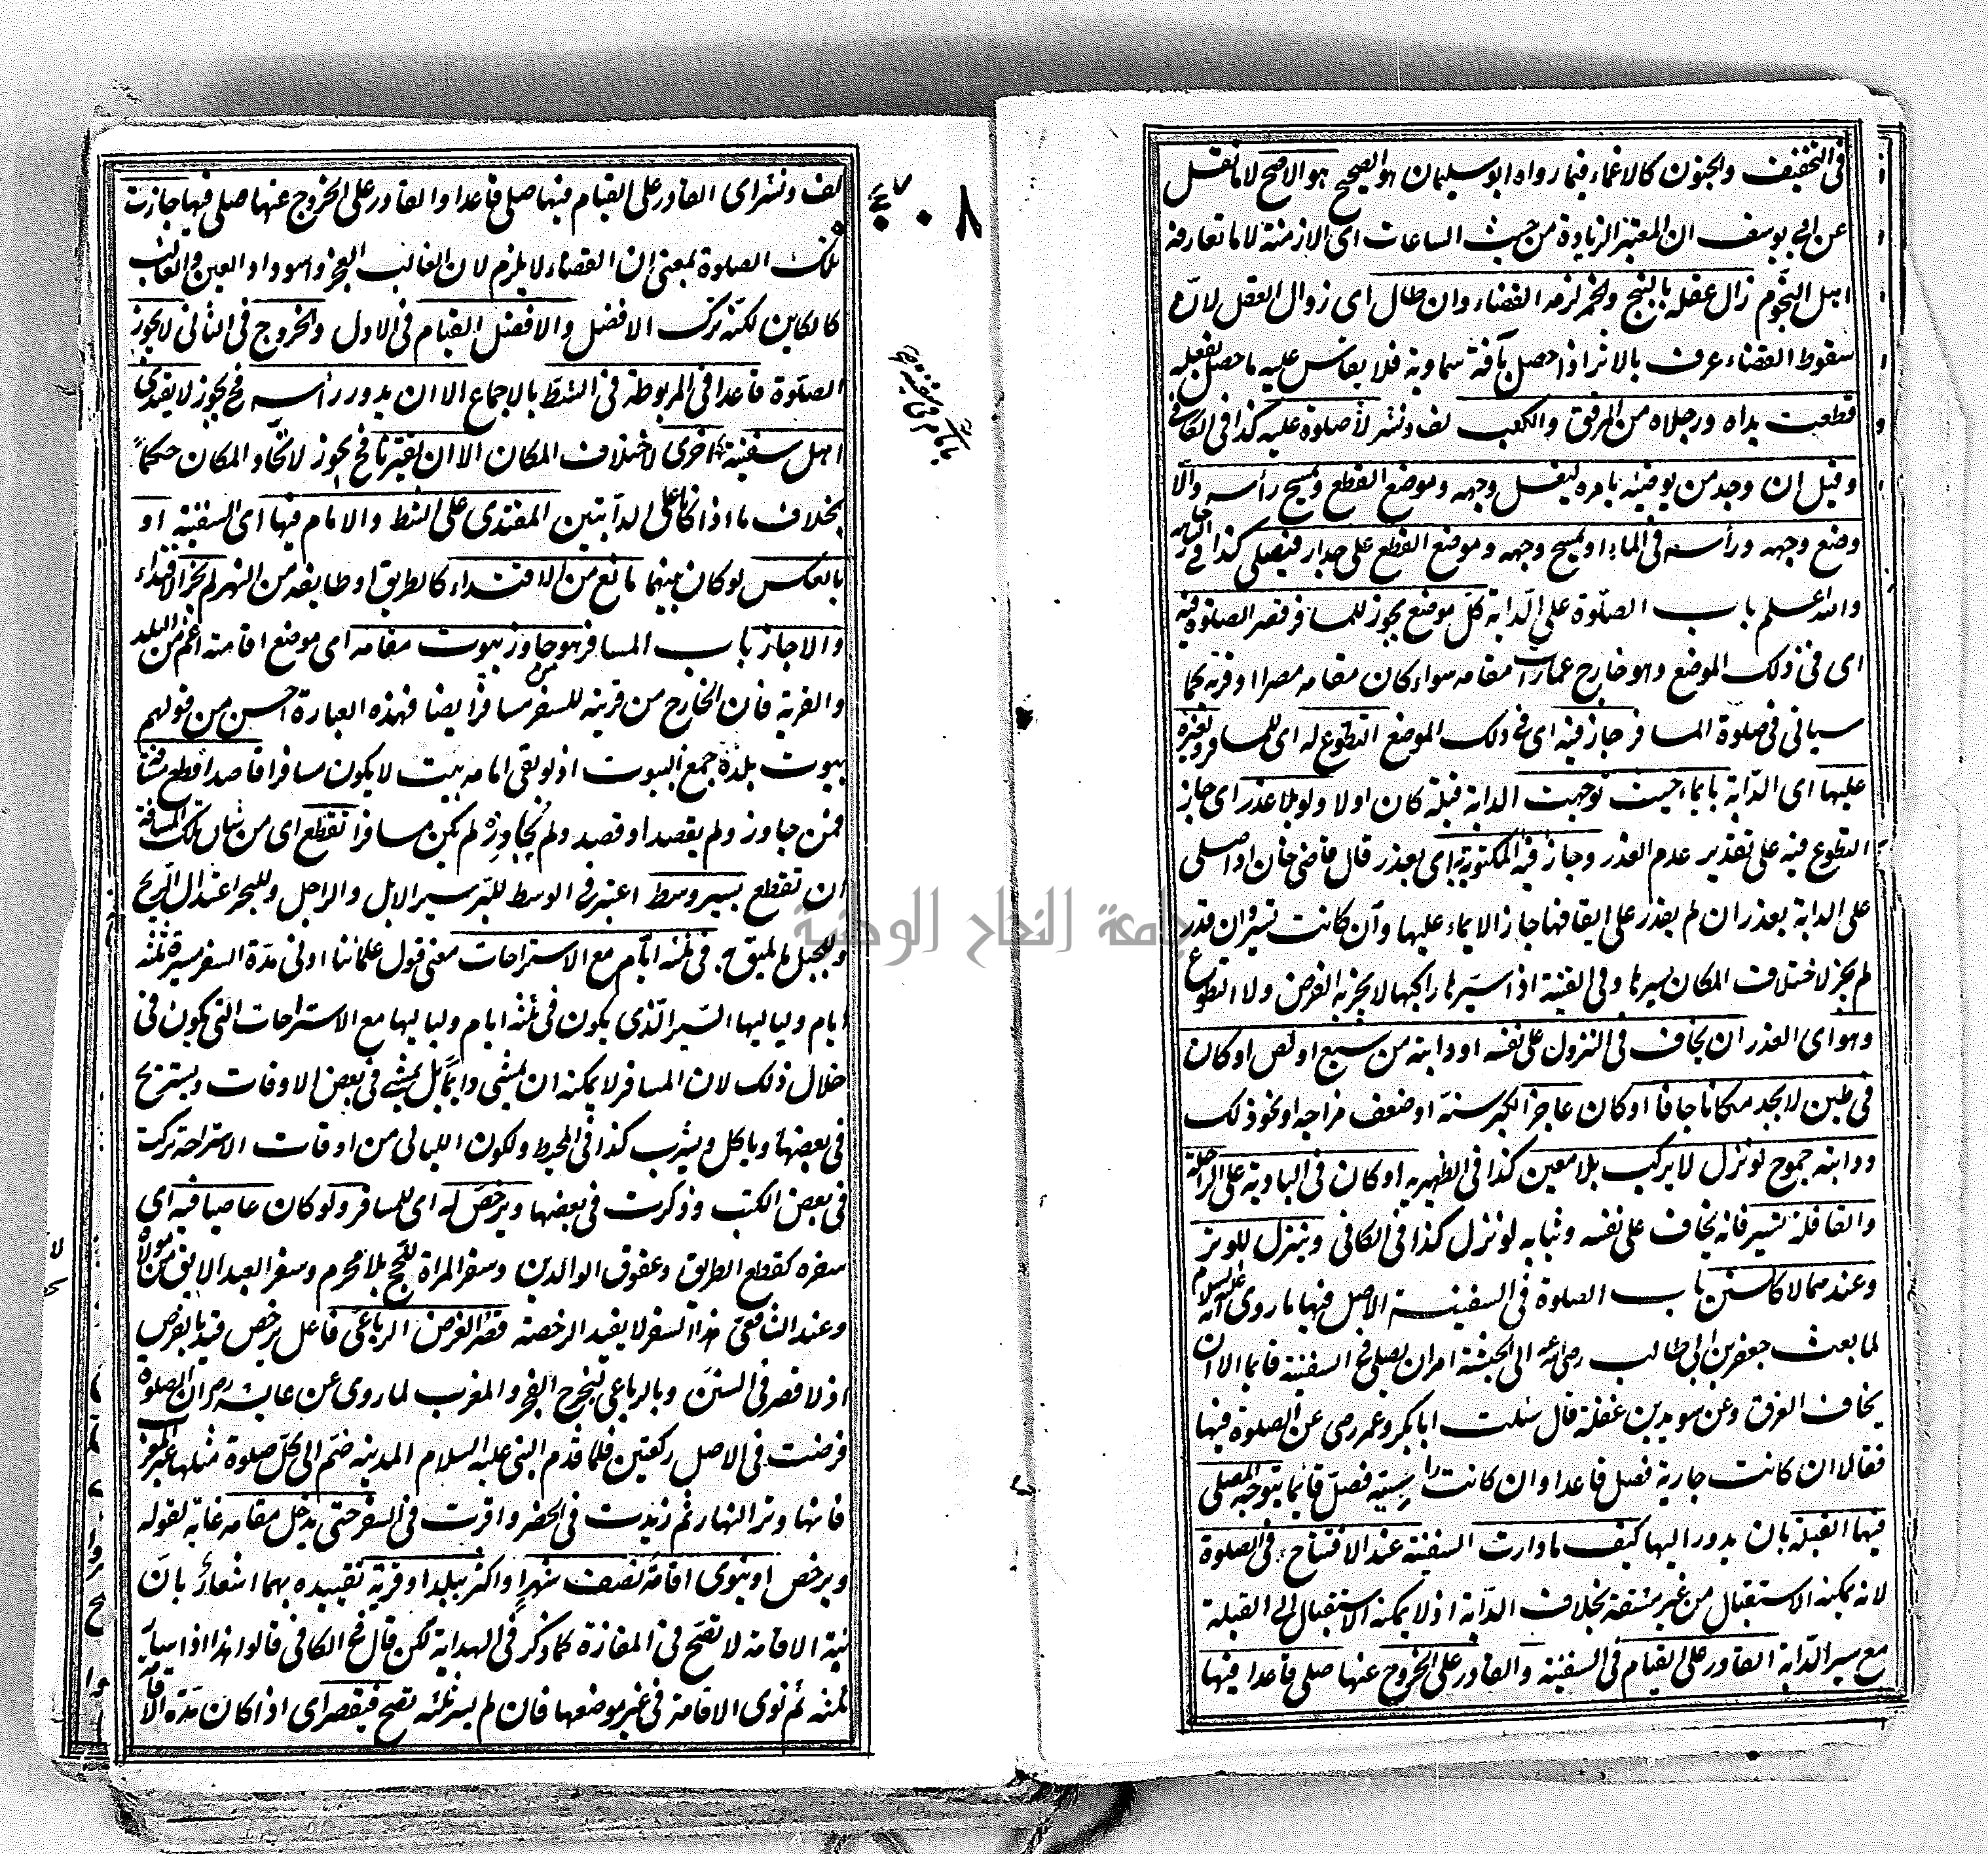 في التخفيف والجنون كالاغماء فيما رواه ابو سليمان هو الصحيح هو الاصح لا ما نقل
عن ابي يوسف ان المعتبر الزيادة من حيث الساعات اى الازمنة لا ما تعارفه
اهل النجوم زال عقله بالبنج والخمر لزمه القضاء وان طال اى زوال العقل لان
سقوط القضاء عرف بالاثر اذا حصل بآفة سماوية فلا يقاس عليه ما حصل بفعله
قطعت يداه ورجلاه من المرفق والكعب لف ونشر لا صلوة عليه كذا في الكافي
وقيل ان وجد من يوضئه يامره ليغسل وجهه وموضع القطع ويمسح رأسه والا
وضع وجهه ورأسه في الماء او يمسح وجهه وموضع القطع على جدار فيصلى كذا في
والله اعلم باب الصلوة على الدابة كل موضع يجوز للمسافر قصر الصلوة فيه
اى في ذلك الموضع وهو خارج عمارات مقامه سواء كان مقامه مصرا او قرية كما
سياتى في صلوة المسافر جاز فيه اى في ذلك الموضع التطوع له اى للمسافر ولغيره
عليها اى الدابة بايماء حيث توجهت الدابة قبلة كان اولا ولو بلا عذر اى جاز
التطوع فيه على تقدير عدم العذر وجاز فيه المكتوبة اى بعذر قال قاضى خان اذا صلى
على الدابة بعذر ان لم يقدر على ايقافها جاز الايماء عليها وان كانت تسير وان قدر
لم يجز لاختلاف المكان بسيرها وفي القنية اذا سيرها راكبها لا يجزيه الفرض ولا التطوع
وهو اى العذر ان يخاف في النزول على نفسه او دابته من سبع او لص او كان
في طين لا يجد مكانا جافا او كان عاجزا لكبر سنه او ضعف مزاجه او نحو ذلك
ودابته جموح لو نزل لا يركب بلا معين كذا في الظهيريه او كان في البادية على الراحلة
والقافلة تسير فانه يخاف على نفسه وثيابه لو نزل كذا في الكافي وينزل للوتر
وعندهما لا كالسنن باب الصلوة في السفينة الاصل فيها ما روى انه عليه السلام
لما بعث جعفر بن ابى طالب رضي الله عنه الى الحبشة امر ان يصلى في السفينة قائما الا ان
يخاف الغرق وعن سويد بن غفلة قال سئلت ابا بكر وعمر رضى عن الصلوة فيها
فقالا ان كانت جارية فصل قاعدا وان كانت راسية فصل قائما يتوجه المصلى
فيها القبلة بان يدور اليها كيف ما دارت السفينة عند الافتتاح وفي الصلوة
لانه يمكنه الاستقبال من غير مشقة بخلاف الدابة اذ لا يمكنه الاستقبال الى القبلة
مع سير الدابة القادر على القيام في السفينة والقادر على الخروج عنها صلى قاعدا فيها
٨٠
لف ونشر اى القادر على القيام فيها صلى قاعدا والقادر على الخروج عنها صلى فيها جازت
تلك الصلوة بمعنى ان القضاء لا يلزم لان الغالب العجز واسوداد العين والغالب
كالكاين لكنه ترك الافضل والافضل القيام في الاول والخروج في الثانى لا يجوز
الصلوة قاعدا في المربوطة في الشط بالاجماع الا ان يدور رأسه فح يجوز لا يقتدى
اهل سفينة اخرى لاختلاف المكان الا ان يقترنا فح يجوز لاتحاد المكان حكما
بخلاف ما اذا كانا على الدابتين المقتدى على الشط والامام فيها اى السفينة او
بالعكس لو كان بينهما مانع من الاقتداء كالطريق او طايفه من النهر لم يجز الاقتداء
والا جاز باب المسافر هو من جاوز بيوت مقامه اى موضع اقامته اعم من البلد
والقرية فان الخارج من قريته للسفر مسافر ايضا فهذه العبارة احسن من قولهم
بيوت بلده جمع البيوت اذ لو بقى امامه بيت لا يكون مسافرا قاصدا قطع مسافة
فمن جاوز ولم يقصد او قصد ولم يجاوزه لم يكن مسافرا تقطع اى من شان تلك المسافة
ان تقطع بسير وسط اعتبر في الوسط للبر سير الابل والراجل وللبحر اعتدال الريح
وللجبل ما يليق به في ثلثة ايام مع الاستراحات معنى قول علمائنا ادنى مدة السفر مسيرة ثلثة
ايام ولياليها السير الذى يكون في ثلثة ايام ولياليها مع الاستراحات التى تكون في
خلال ذلك لان المسافر لا يمكنه ان يمشى دائما بل يمشى في بعض الاوقات ويستريح
في بعضها وياكل ويشرب كذا في المحيط ولكون الليالى من اوقات الاستراحة تركت
في بعض الكتب وذكرت في بعضها ويرخص له اى للمسافر ولو كان عاصيا فيه اى
سفره كقطع الطريق وعقوق الوالدين وسفر المراة للحج بلا محرم وسفر العبد الابق من مولاه
وعند الشافعى هذا السفر لا يفيد الرخصة قصر الفرض الرباعى فاعل يرخص قيد بالفرض
اذ لا قصر في السنن وبالرباعى ليخرج الفجر والمغرب لما روى عن عايشه رض ان الصلوة
فرضت في الاصل ركعتين فلما قدم النبى عليه السلام المدينة ضم الى كل صلوة مثلها غير المغرب
فانها وتر النهار ثم زيدت في الحضر واقرت في السفر حتى يدخل مقامه غاية لقوله
ويرخص او ينوى اقامة نصف شهر او اكثر ببلد او قرية تقييده بهما اشعار بان
نية الاقامة لا تصح في المفازة كما ذكر في الهداية لكن قال في الكافي قالوا هذا اذا سار
ثلثه ثم نوى الاقامة في غير موضعها فان لم يسر ثلثه تصح فيقصر اى اذا كان مدة الاقامة
جامعة النجاح الوطنية